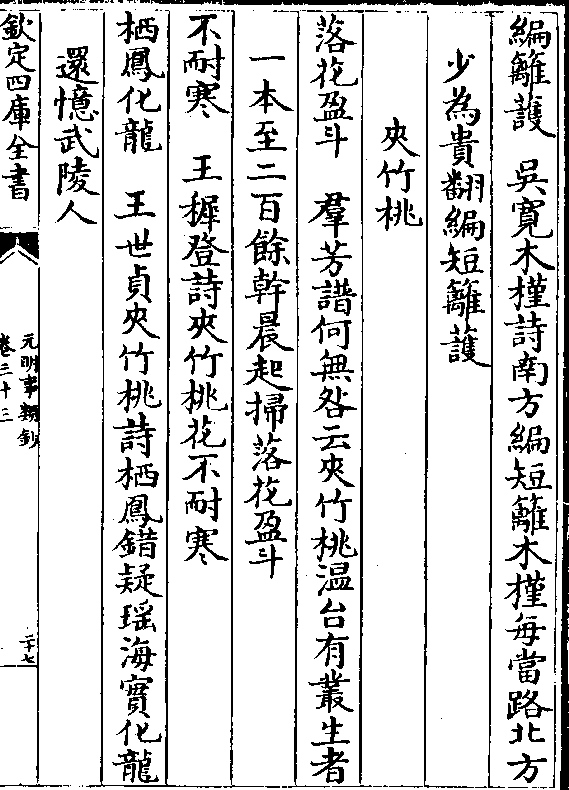 編籬䕶　吳寛木槿詩南方編短籬木槿每當路北方
少為貴翻編短籬䕶
夾竹桃
落花盈斗　羣芳譜何無咎云夾竹桃温台有叢生者
一本至二百餘幹晨起掃落花盈斗
不耐寒　王穉登詩夾竹桃花不耐寒
栖鳳化龍　王世貞夾竹桃詩栖鳳錯疑瑶海實化龍
還憶武陵人
欽定四庫全書
元明事類鈔
卷三十三
二十七